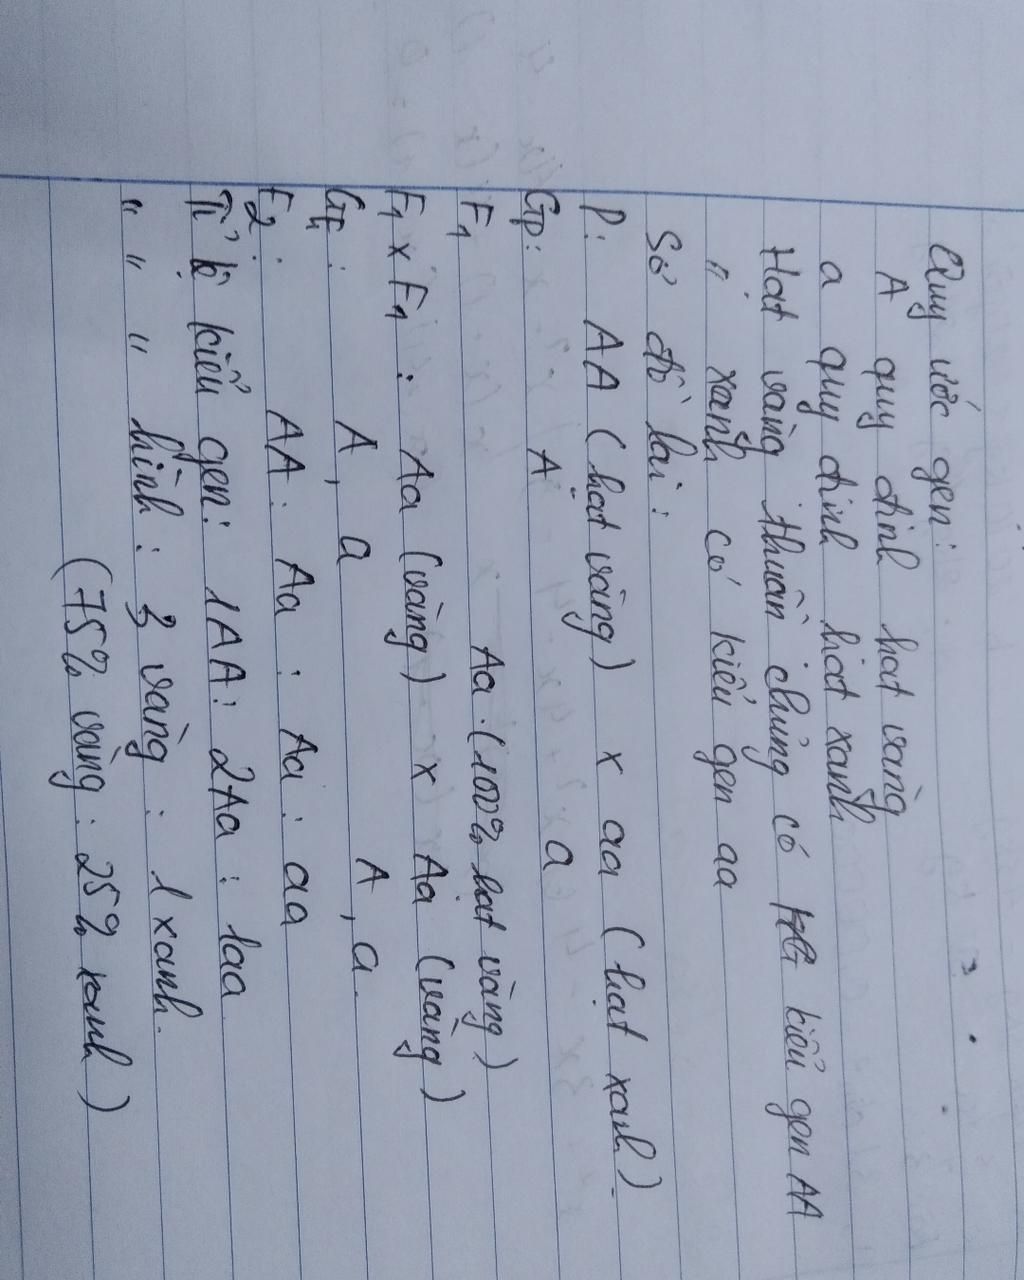 Quy ước gen:
A quy định hạt vàng
a quy định hạt xanh
Hạt vàng thuần chủng có kiểu gen AA
" xanh có kiểu gen aa
Sơ đồ lai:
P: AA (hạt vàng) x aa (hạt xanh)
Gp: A a
F1 Aa (100% hạt vàng)
F1 x F1: Aa (vàng) x Aa (vàng)
GF1: A, a A, a
F2: AA: Aa: Aa: aa
Tỉ lệ kiểu gen: 1AA: 2Aa: 1aa
" " " hình: 3 vàng: 1 xanh.
(75% vàng: 25% xanh)